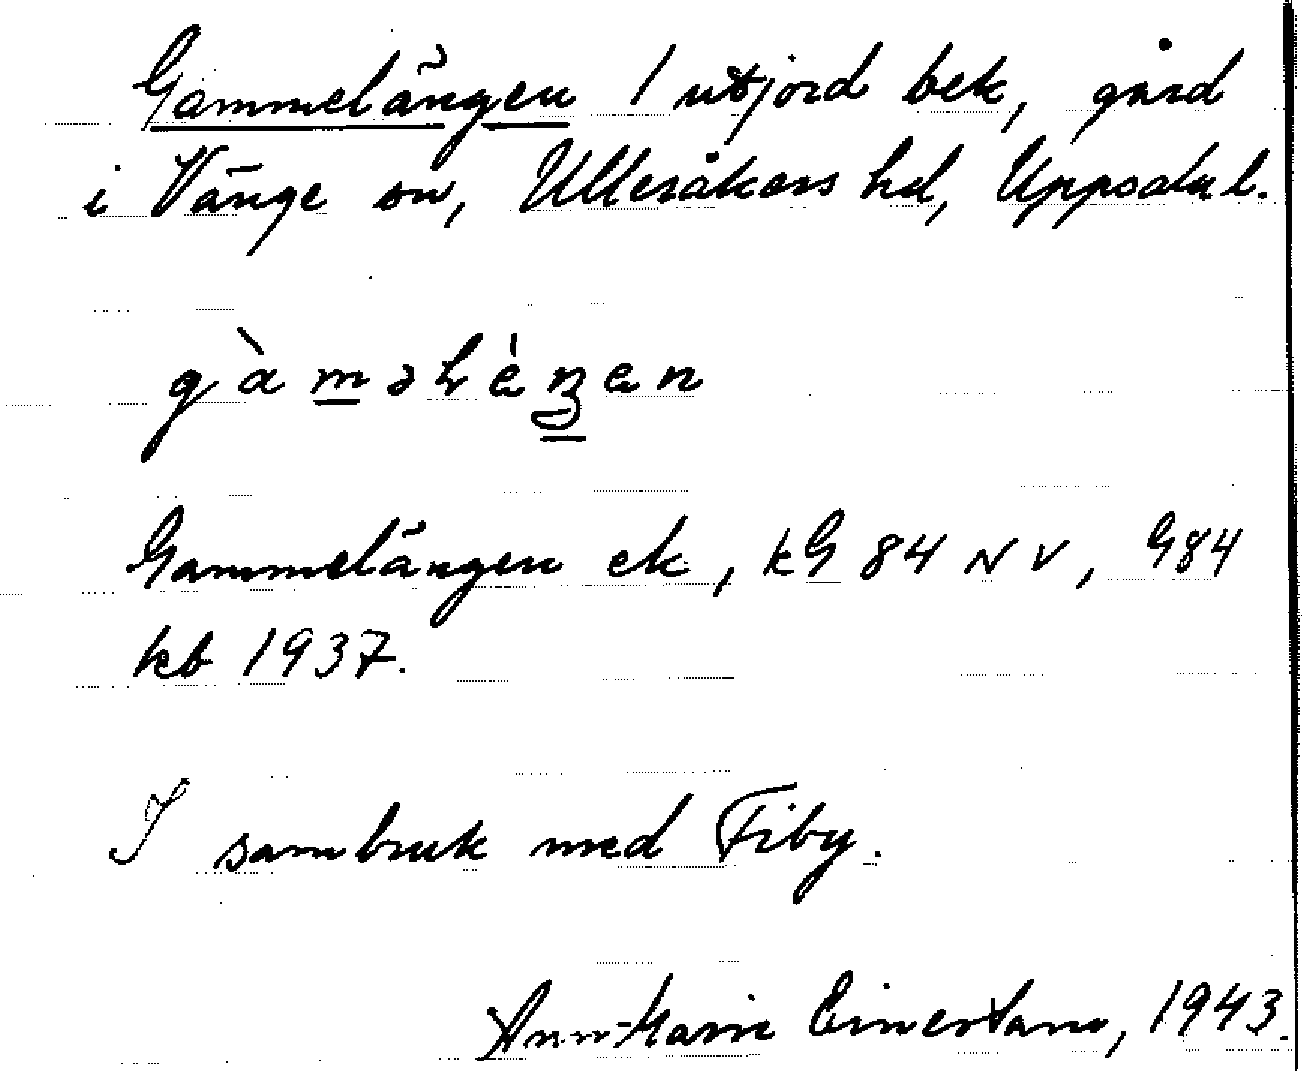 Gammelängen 1 utjord bek, gård
i Vänge sn, Ulleråkers hd, Uppsala l.
Gammelängen ek, kG 84 NV, G84
kb 1937.
I sambruk med Fiby.
Ann-Marie Einerstam, 1943.